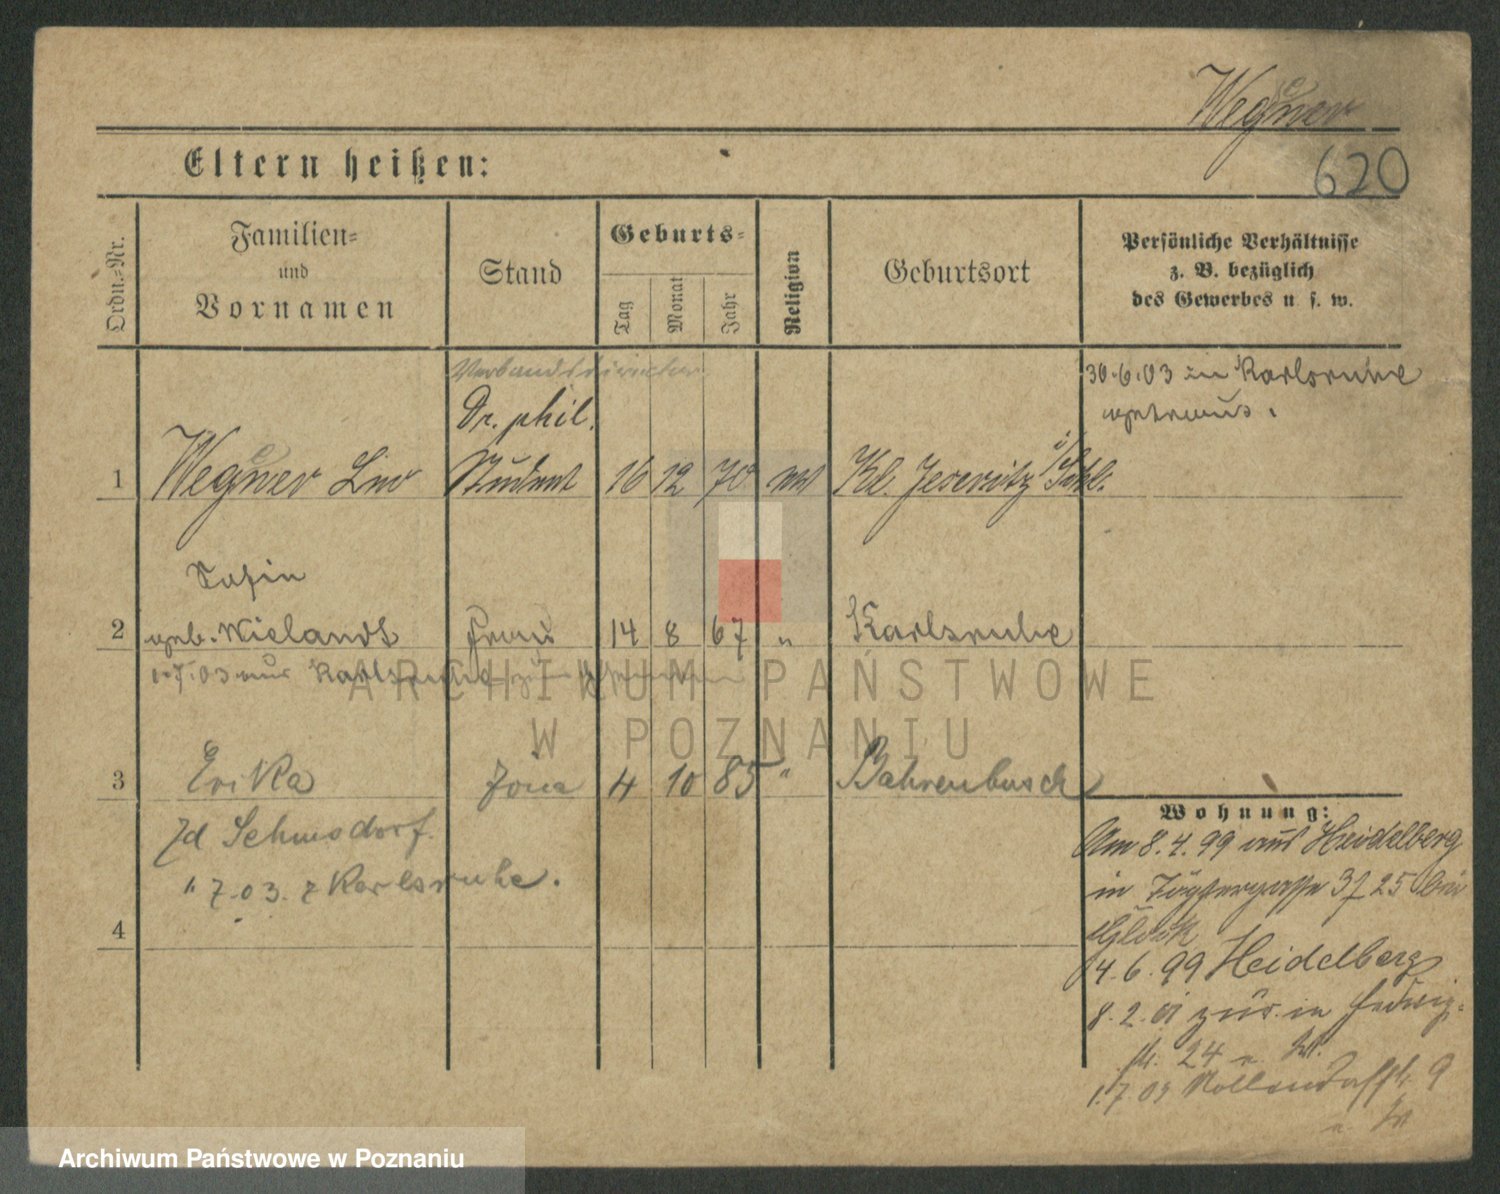 Wegener
620
Eltern heißen:
Ordn.=Nr.
Familien=
und
Vornamen
Stand
Geburts=
Tag
Monat
Jahr
Religion
Geburtsort
Persönliche Verhältnisse
z. B. bezüglich
des Gewerbes u s. w.
Verbandsdirector
Dr. phil.
30.6.03 in Karlsruhe
getraut.
1 Wegener Leo Student 16 12 70 Kl. i/Schl.
2 geb. Wielandt Frau 14 8 67 " Karlsruhe
1.7.03 aus Karlsruhe
3 Erika 4 10 85 " Bahrenbusch
Schmsdorf.
" 7.03. z Karlsruhe.
4
Wohnung:
Am 8.4.99 aus Heidelberg
in 25 bei
Glock
4.6.99 Heidelberg
8.2.01 zur. in Hedwig=
str. 24
1.7.03 9
ARCHIWUM PAŃSTWOWE
W POZNANIU
Archiwum Państwowe w Poznaniu